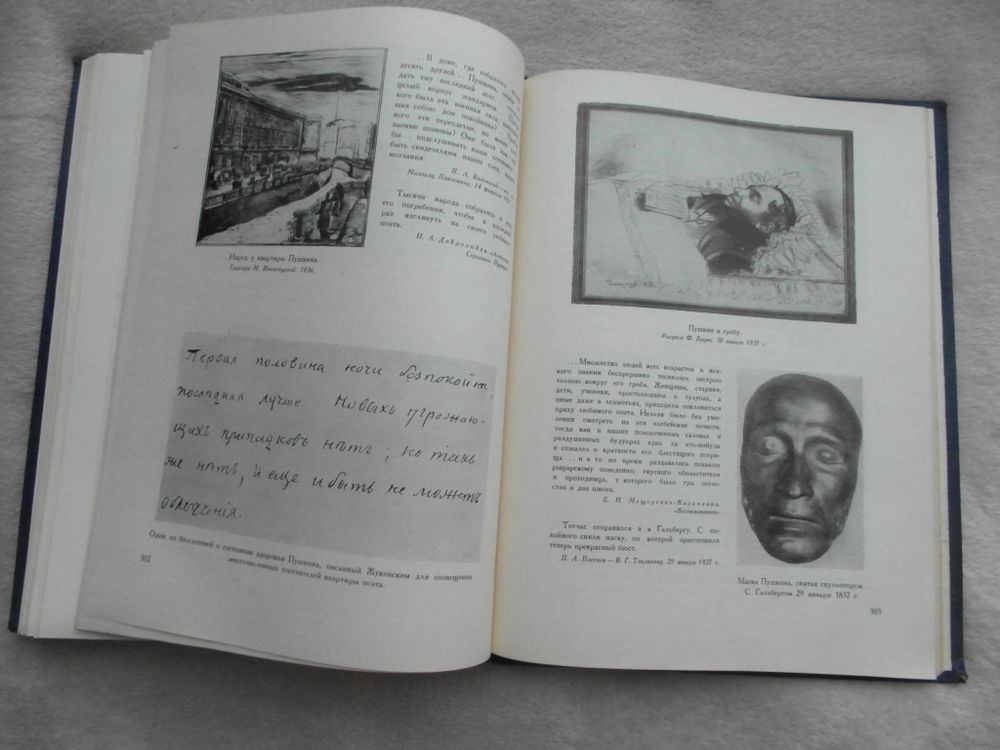 ...В доме, где собралось
десять друзей... Пушкина, чтобы
дать ему последний долг,
целый корпус жандармов.
кого была эта военная сила,
шая собою дом покойника?
кого эти переодетые, но всеми
ваемые шпионы? Они были там,
бы... подслушивать наши сетования,
быть свидетелями наших слез, нашего
молчания.
П. А. Вяземский —
Михаилу Павловичу. 14 февраля
Тысячи народа собрались в день
его погребения, чтобы в последний
раз взглянуть на своего любимого
поэта.
Н. А. Добролюбов. «Александр
Сергеевич Пушкин»
Народ у квартиры Пушкина.
Гравюра 1936.
Первая половина ночи безпокойна,
последняя лучше. Новыхъ угрожаю-
щихъ припадковъ нѣтъ; но такъ
же нѣтъ, и еще и быть не можетъ
облегченія.
Один из бюллетеней о состоянии здоровья Пушкина, писанный Жуковским для оповещения
многочисленных посетителей квартиры поэта.
302
Пушкин в гробу.
Рисунок Ф. Бруни. 30 января 1837 г.
...Множество людей всех возрастов и вся-
кого звания беспрерывно теснилось пестрою
толпою вокруг его гроба. Женщины, старики,
дети, ученики, простолюдины в тулупах, а
иные даже в лохмотьях, приходили поклониться
праху любимого поэта. Нельзя было без уми-
ления смотреть на эти плебейские почести,
тогда как в наших позолоченных салонах и
раздушенных будуарах едва ли кто-нибудь
и сожалел о краткости его блестящего поприща
ща... и в то же время раздавались похвалы
рыцарскому поведению гнусного обольстителя
и проходимца, у которого было три отече-
ства и два имени.
Е. Н. Мещерская-Карамзина.
«Воспоминания».
Тотчас отправился я к Гальбергу. С по-
койного сняли маску, по которой приготовили
теперь прекрасный бюст.
П. А. Плетнев — В. Г. Теплякову. 29 января 1837 г.
Маска Пушкина, снятая скульптором
С. Гальбергом 29 января 1837 г.
303